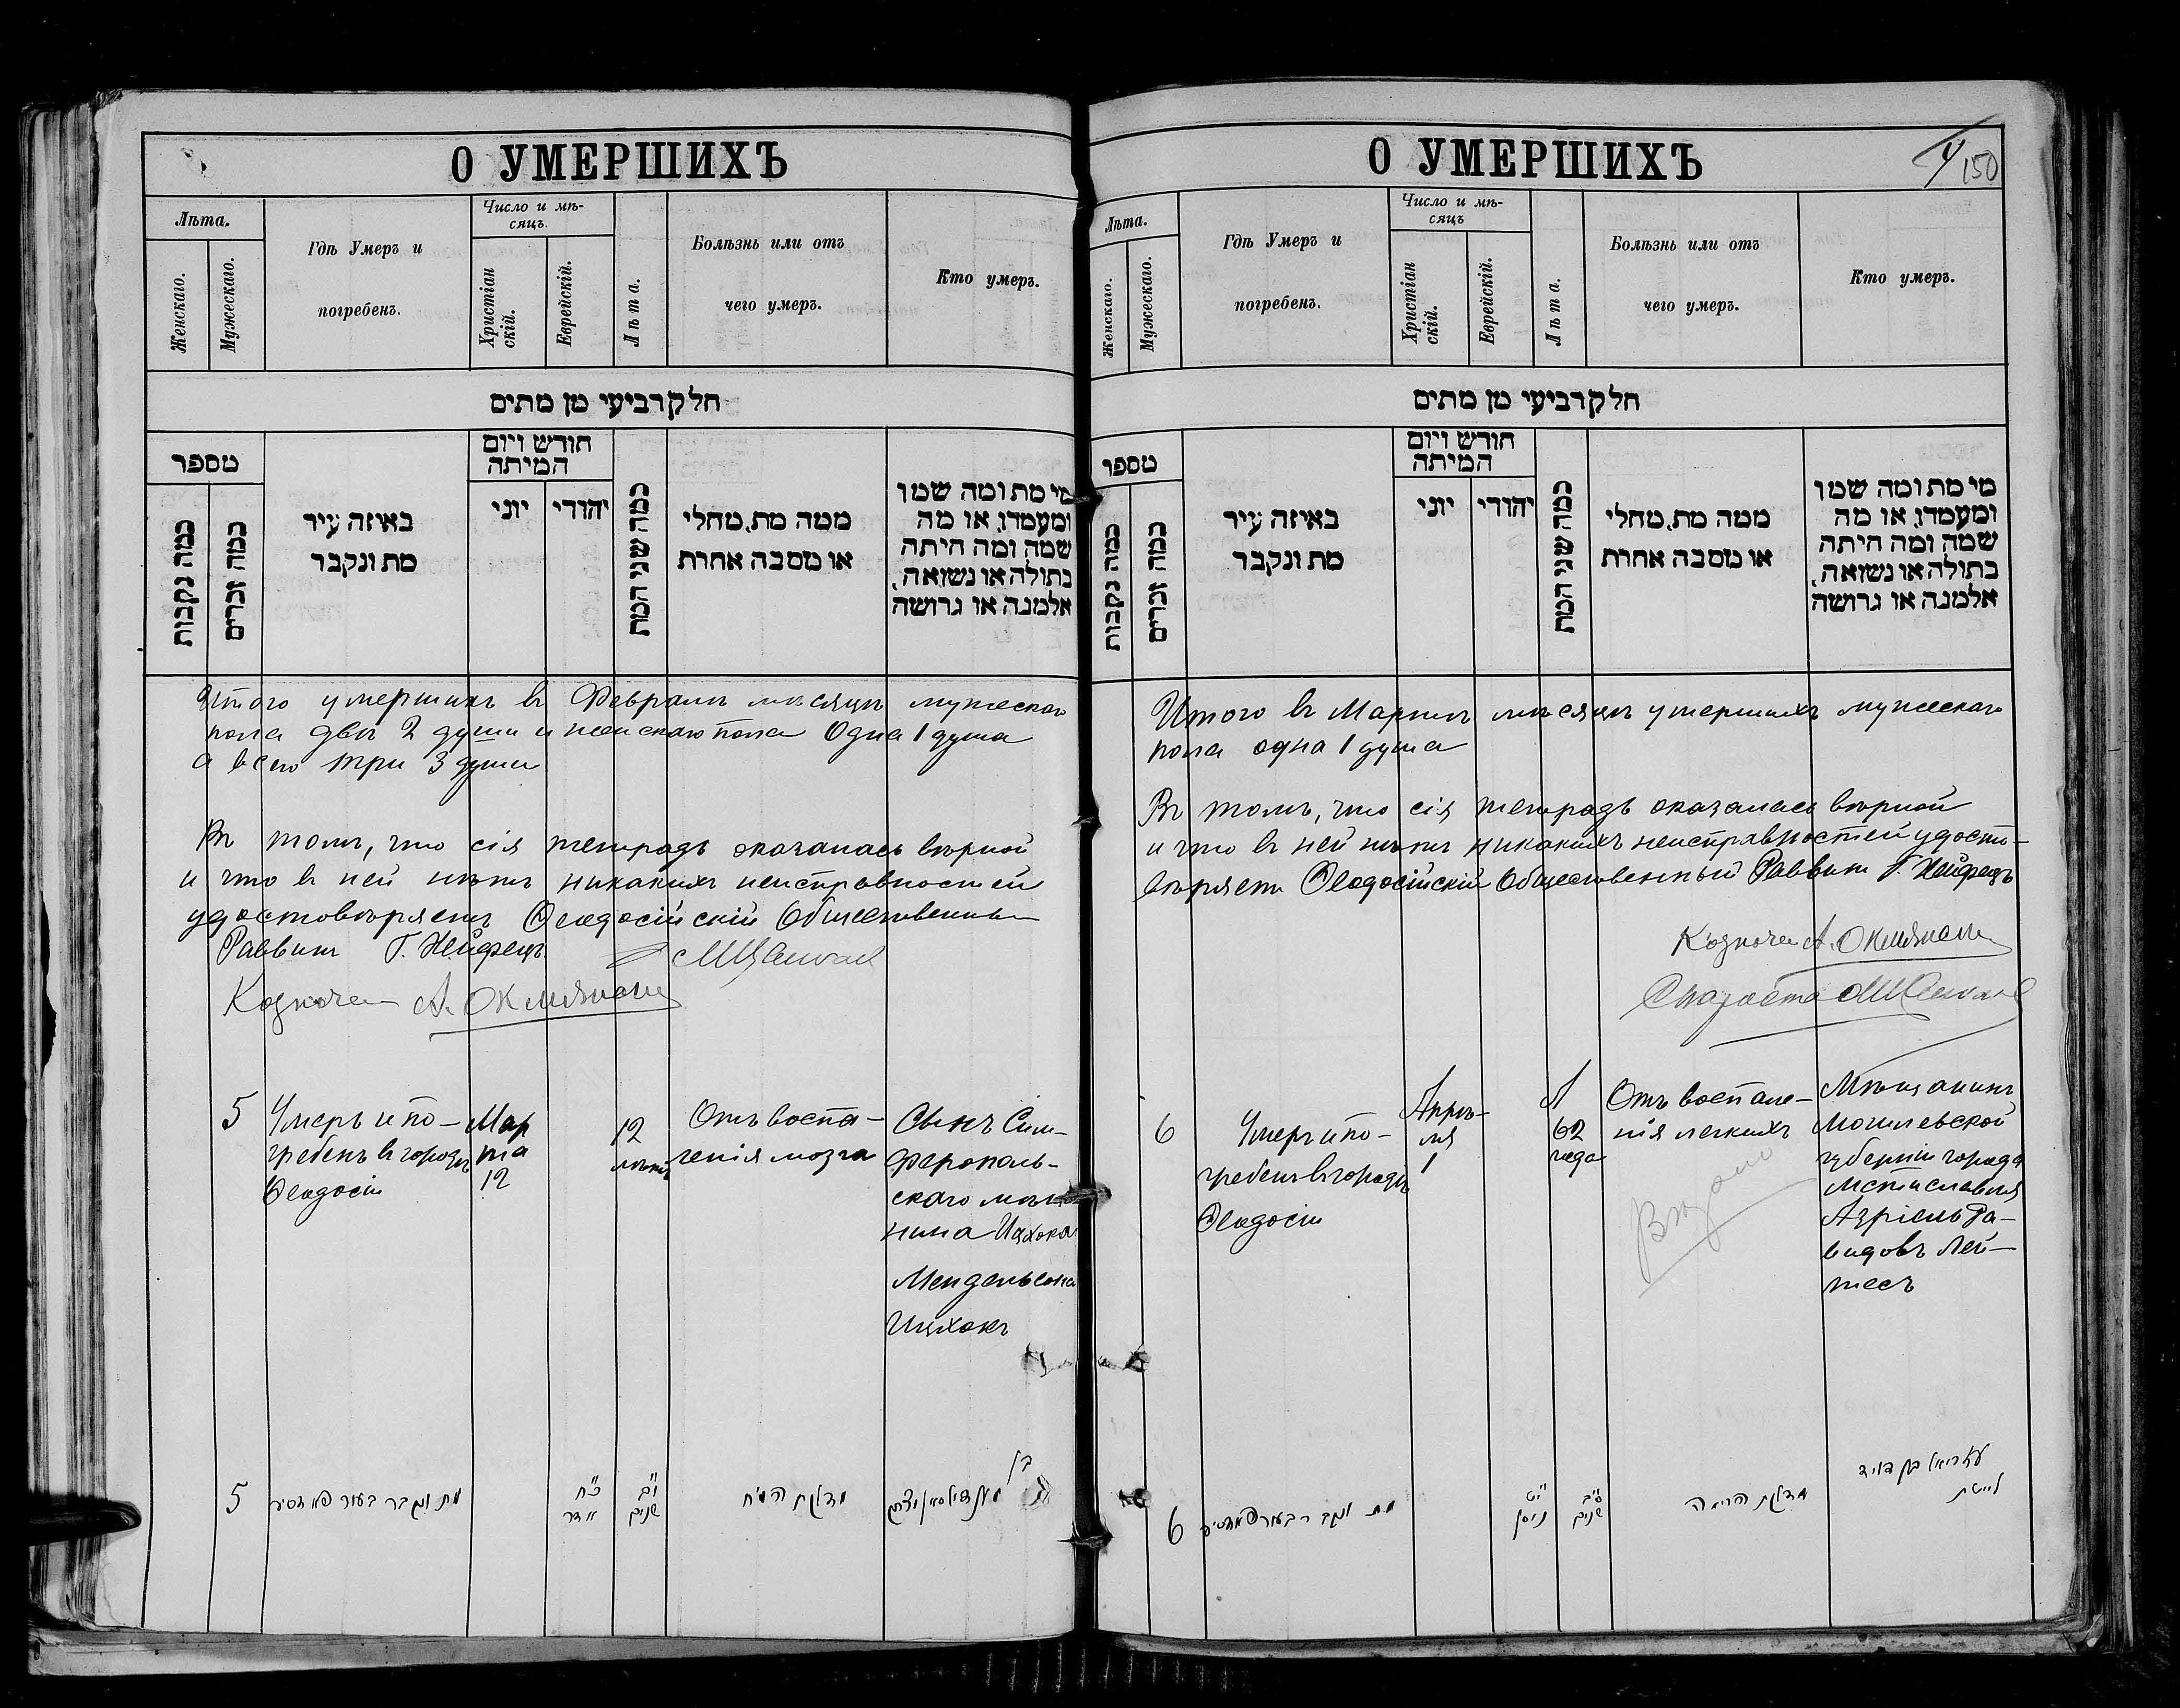 О УМЕРШИХЪ
Лѣта.
Женскаго.
Мужескаго.
Гдѣ Умеръ и
погребенъ.
Число и мѣ-
сяцъ.
Христіан
скій.
Еврейскій.
Лѣта.
Болѣзнь или отъ
чего умеръ.
Кто умеръ.
חלק רביעי מן מתים
מספר
כמה נקבות
כמה זכרים
באיזה עיר
מת ונקבר
חודש ויום
המיתה
יוני
יהודי
כמה שני המת
ממה מת, מחלי
או מסבה אחרת
מי מת ומה שמו
ומעמדו, או מה
שמה ומה היתה
בתולה או נשואה,
אלמנה או גרושה
Итого умершихъ въ Февралѣ мѣсяцѣ мужескаго
пола двѣ 2 души и женскаго пола Одна 1 душа
а всего три 3 души
Въ томъ, что сія тетрадь оказалась вѣрной
и что въ ней нѣтъ никакихъ неисправностей
удостовѣряетъ Ѳеодосійскій Общественный
Раввинъ Г. Хейфецъ
Казначей А.
5
Умеръ и по-
гребенъ въ городѣ
Ѳеодосіи
Мар
та
12
12
лѣтъ
Отъ воспа-
ленія мозга
Сынъ Сим-
ферополь-
скаго мѣща
нина Ицхока
Мендельсона
Ицхокъ
5
מת ונקבר בעיר פאדסיע
כ״ח
אדר
י״ב
שנים
מדלקת המוח
בן
מענדילסאן יצחק
О УМЕРШИХЪ
4
150
Лѣта.
Женскаго.
Мужескаго.
Гдѣ Умеръ и
погребенъ.
Число и мѣ-
сяцъ
Христіан
скій.
Еврейскій.
Лѣта.
Болѣзнь или отъ
чего умеръ.
Кто умеръ.
חלק רביעי מן מתים
מספר
כמה נקבות
כמה זכרים
באיזה עיר
מת ונקבר
חודש ויום
המיתה
יוני
יהודי
כמה שני המת
ממה מת, מחלי
או מסבה אחרת
מי מת ומה שמו
ומעמדו, או מה
שמה ומה היתה
בתולה או נשואה,
אלמנה או גרושה
Итого въ Мартѣ мѣсяцѣ умершихъ мужескаго
пола одна 1 душа
Въ томъ, что сія тетрадь оказалась вѣрной
и что въ ней нѣтъ никакихъ неисправностей удосто-
вѣряетъ Ѳеодосійскій Общественный Раввинъ Г. Хейфецъ
Казначей А.
Староста
6
Умеръ и по-
гребенъ въ городѣ
Ѳеодосіи
Апрѣ-
ля
1
62
года
Отъ воспале-
нія легкихъ
Мѣщанинъ
Могилевской
губерніи города
Мстиславля
Азріель Да-
видовъ Лей-
тесъ
6
מת ונקבר בעיר פאדסיע
י״ט
ניסן
ס״ב
שנים
מדלקת הריאה
עזריאל בן דויד
לייטעס